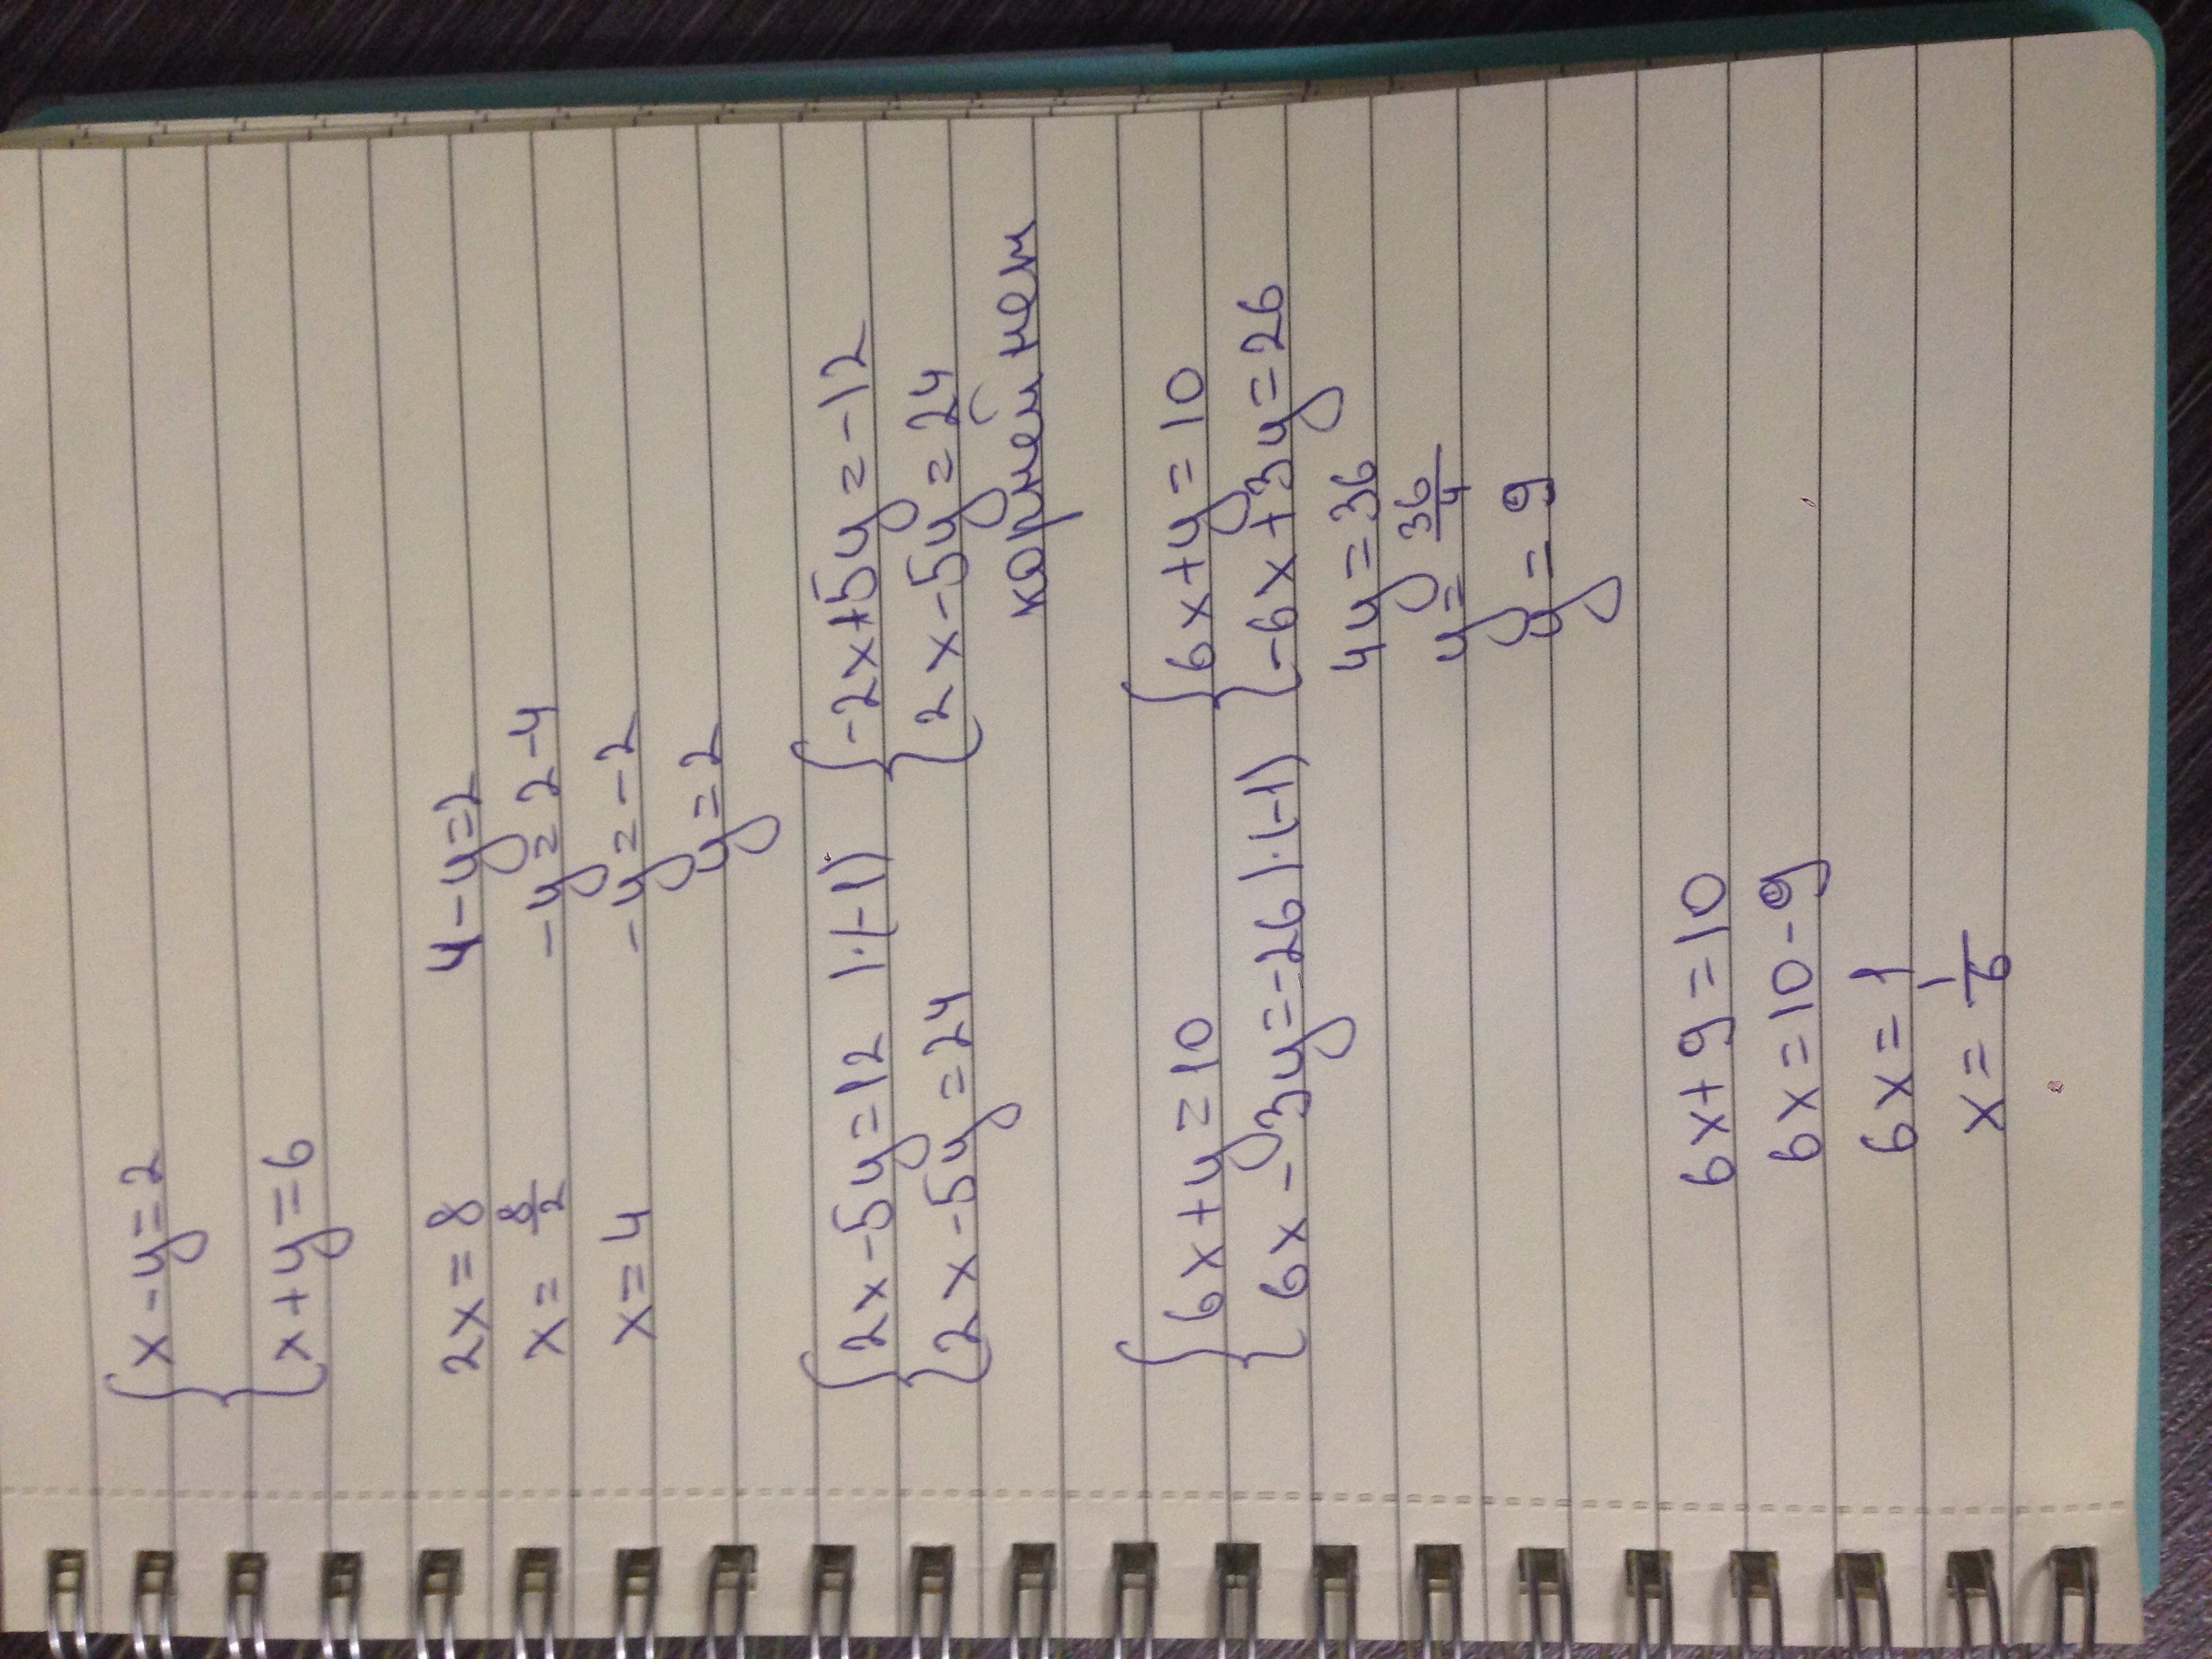 {x-y=2
{x+y=6
2x=8 4-y=2
x=8/2 -y=2-4
x=4 -y=-2
y=2
{2x-5y=12 |·(-1) {-2x+5y=-12
{2x-5y=24 {2x-5y=24
корней нет
{6x+y=10 {6x+y=10
{6x-3y=-26 |·(-1) {-6x+3y=26
4y=36
y=36/4
y=9
6x+9=10
6x=10-9
6x=1
x=1/6